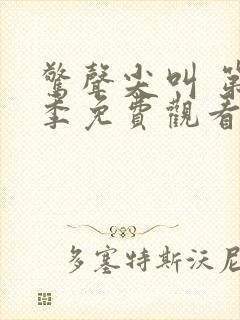 驚聲尖叫 第
季免費觀看
多塞特斯沃尼